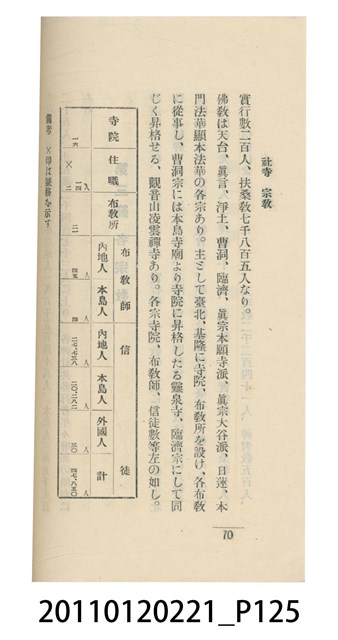 社寺　宗教
實行教二百人、扶桑教七千八百五人なり。
佛教は天台、眞言、淨土、曹洞、臨濟、眞宗本願寺派、眞宗大谷派、日蓮、本
門法華顯本法華の各宗あり。主として臺北、基隆に寺院、布教所を設け、各布教
に從事し、曹洞宗には本島寺廟より寺院に昇格したる靈泉寺、臨濟宗にして同
じく昇格せる、觀音山凌雲禪寺あり。各宗寺院、布教師、信徒數等左の如し。
寺院　住職　布教所　布教師　信徒
內地人　本島人　內地人　本島人　外國人　計
備考　×印は兼務を示す
70
20110120221_P125